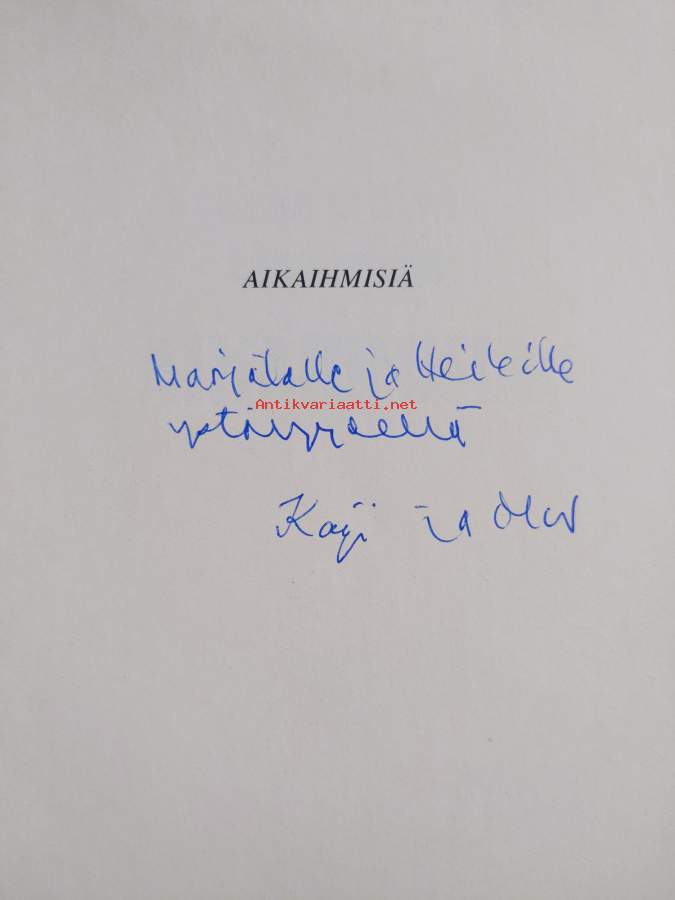 AIKAIHMISIÄ
Marjatalle ja Heikille
Antikvariaatti.net
ystävyydellä
Kaija ja